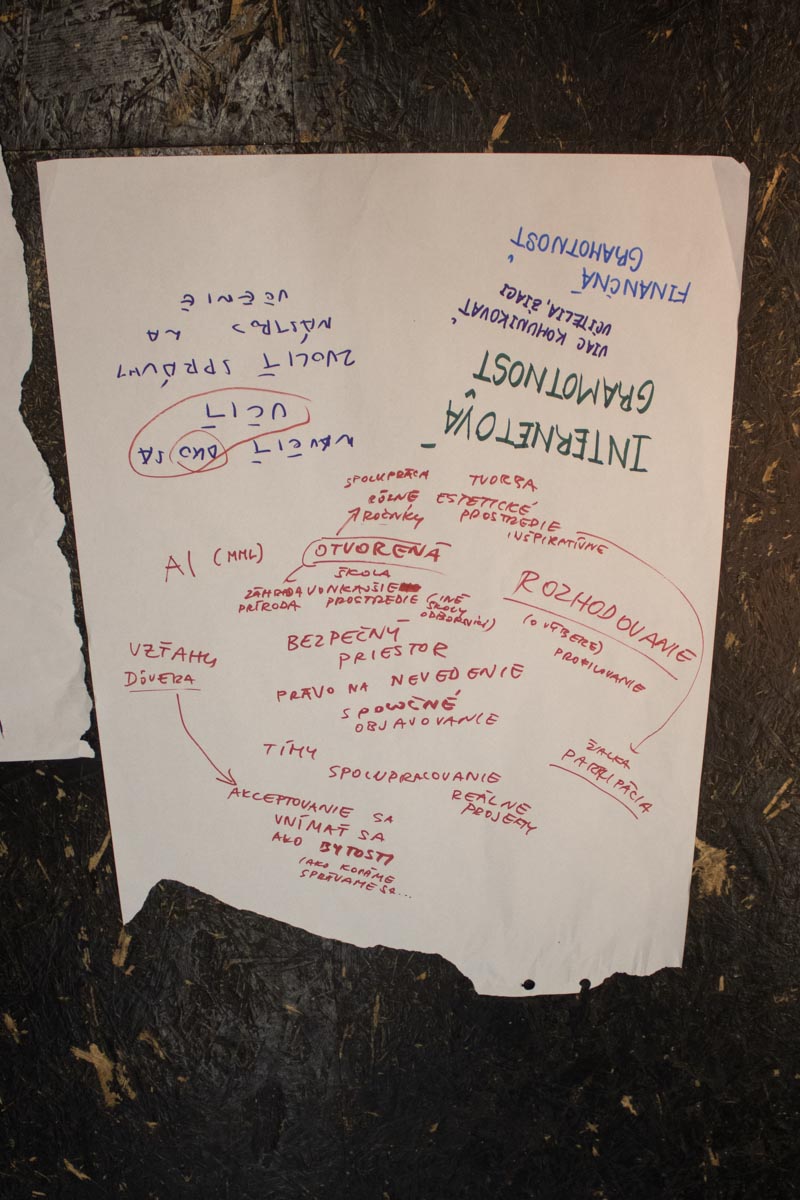 SPOLUPRÁCA
RÔZNE
ROČNÍKY
TVORBA
ESTETICKÉ
PROSTREDIE
INŠPIRATÍVNE
AI (MML)
OTVORENÁ
ŠKOLA
ZÁHRADA VONKAJŠIE
PRÍRODA PROSTREDIE (INÉ
ŠKOLY
ODBORNÍCI)
ROZHODOVANIE
(O VÝBERE)
PROFILOVANIE
BEZPEČNÝ
PRIESTOR
VZŤAHY
DÔVERA
PRÁVO NA NEVEDENIE
SPOLOČNÉ
OBJAVOVANIE
TÍMY
SPOLUPRACOVANIE
REÁLNE
PROJEKTY
ŽIACKA
PARTICIPÁCIA
AKCEPTOVANIE SA
VNÍMAŤ SA
AKO BYTOSTI
(AKO KONÁME
SPRÁVAME SA...
FINANČNÁ
GRAMOTNOSŤ
VIAC KOMUNIKOVAŤ
UČITELIA, ŽIACI
INTERNETOVÁ
GRAMOTNOSŤ
NAUČIŤ AKO SA
UČIŤ
ZVOLIŤ SPRÁVNY
NÁSTROJ NA
UČENIE